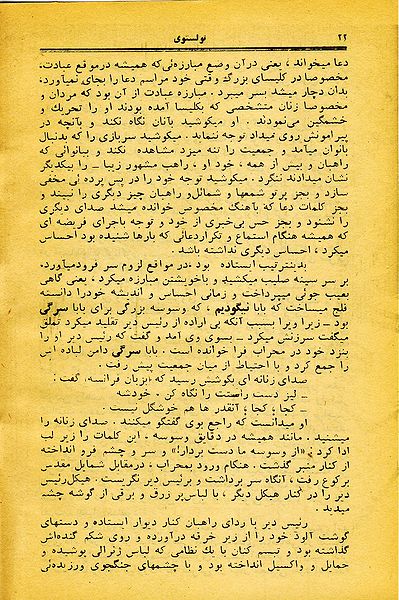 ۲۲ تولستوی
دعا میخواند ، یعنی در آن وضع مبارزه‌ئی‌که همیشه در موقع عبادت،
مخصوصا در کلیسای بزرگ وقتی خود مراسم دعا را بجای نمیآورد،
بدان دچار میشد بسر میبرد . مبارزه عبارت از آن بود که مردان و
مخصوصا زنان متشخصی که بکلیسا آمده بودند او را تحریک و
خشمگین می‌نمودند . او میکوشید بآنان نگاه نکند و بآنچه در
پیرامونش روی میداد توجه ننماید . میکوشید سربازی را که بدنبال
بانوان میآمد و جمعیت را تنه میزد مشاهده نکند و ببانوانی که
راهبان و بیش از همه ، خود او ، راهب مشهور زیبا ــ را بیکدیگر
نشان میدادند ننگرد . میکوشید توجه خود را در پس پرده ئی مخفی
سازد و بجز پرتو شمعها و شمائل و راهبان چیز دیگری را نبیند و
بجز کلمات دعا که بآهنگ مخصوص خوانده میشد صدای دیگری
را نشنود و بجز حس بی‌خبری از خود و توجه باجرای فریضه ای
که همیشه هنگام استماع و تکرار دعائی که بارها شنیده بود احساس
میکرد ، احساس دیگری نداشته باشد .
بدینترتیب ایستاده بود ،در مواقع لزوم سر فرود میآورد،
بر سر سینه صلیب میکشید و باخویشتن مبارزه میکرد ، یعنی گاهی
بعیب جوئی میپرداخت و زمانی احساس و اندیشه خود را دانسته
فلج میساخت که بابا نیکودیم ، که وسوسه بزرگی برای بابا سرگی
بود ــ زیرا ویرا بسبب آنکه بی اراده از رئیس دیر تقلید میکرد تملق
میگفت سرزنش میکرد ــ بسوی وی آمد و گفت که رئیس دیر او را
بنزد خود در محراب فرا خوانده است . بابا سرگی دامن لباده اش
را جمع کرد و با احتیاط از میان جمعیت پیش رفت .
صدای زنانه ای بگوشش رسید که ،بزبان فرانسه، گفت :
ــ لیز دست راستت را نگاه کن . خودشه
ــ کجا ؛ کجا ؛ آنقدر ها هم خوشگل نیست .
او میدانست که راجع بوی گفتگو میکنند . صدای زنانه را
میشنید . مانند همیشه در دقایق وسوسه ، این کلمات را زیر لب
ادا کرد : «از وسوسه ما دست بردار!» و سر و چشم فرو انداخته
از کنار منبر گذشت . هنگام ورود بمحراب ، درمقابل شمایل مقدس
برکوع رفت ، آنگاه سر برداشت و برئیس دیر نگریست . هیکل رئیس
دیر را در کنار هیکل دیگر ، با لباس پر زرق و برقی از گوشه چشم
میدید .
رئیس دیر با ردای راهبان کنار دیوار ایستاده و دستهای
گوشت آلود خود را از زیر خرقه درآورده و روی شکم گنده‌اش
گذاشته بود و تبسم کنان با یک نظامی که لباس ژنرالی پوشیده و
حمایل و واکسیل انداخته بود و با چشمهای جنگجوی ورزیده‌ئی